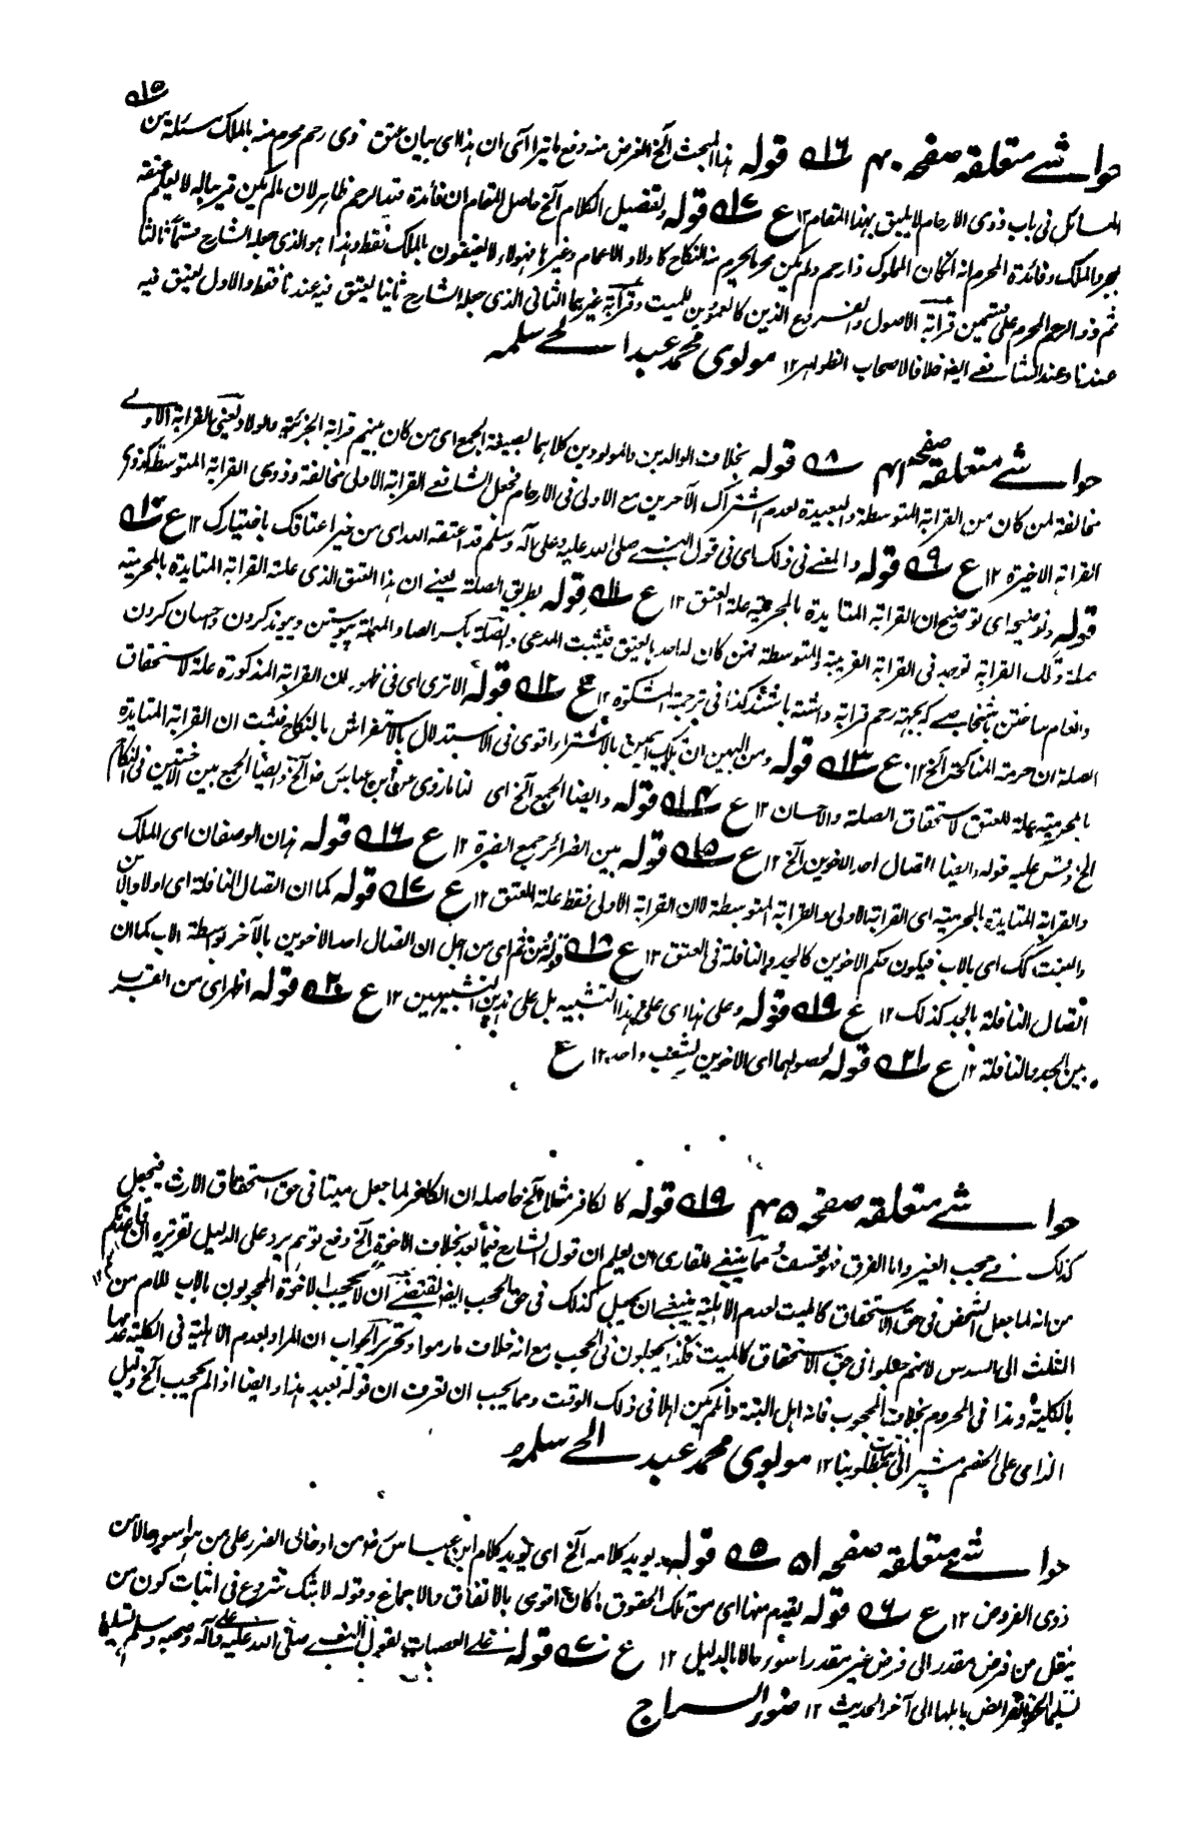 ۱۵
حواشے متعلقہ صفحہ ۴۰ ۱۶ قولہ ہذا المبحث آلخ الغرض منہ دفع ما یترا آی ان ہذا ای بیان عتق ذوی رحم محرم منہ بالملک مسئلۃ من
المسائل فی باب ذوی الارحام لا یلیق بہذا المقام ۱۲ ع ۱۷ قولہ وتفصیل الکلام آلخ حاصل المقام ان فائدۃ قید الرحم ظاہر لان مالم یکن قریبا لہ لا یعلم عتقہ
بمجرد الملک وفائدۃ المحرم انہ ان کان المملوک ذا رحم ولم یکن محرما یحرم منہ النکاح کاولاد الاعمام وغیرہا فہولاء لا یعتقون بالملک فقط وہذا ہو الذی جعلہ الشارح قسما ثالثا
ثم ذو الرحم المحرم علی قسمین قرابۃ الاصول والفروع الذین کالعمودین للمیت وقرابۃ غیرہما الثانی الذی جعلہ الشارح ثانیا لیعتق فیہ عندنا فقط والاول یعتق فیہ
عندنا وعند الشافعے ایضا خلافا لاصحاب الظواہر ۱۲ مولوی محمد عبد الحے سلمہ
حواشے متعلقہ صفحہ ۴۱ ۸ قولہ بخلاف الوالدین والمولودین کلاہما بصیغۃ الجمع ای من کان بینہم قرابۃ الجزئیۃ والولاد یعنی القرابۃ الاولے
مخالفۃ لمن کان من القرابۃ المتوسطۃ والبعیدۃ لعدم اشتراک الآخرین مع الاولی فی الارحام فجعل الشافعے القرابۃ الاولی مخالفۃ وذوی القرابۃ المتوسطۃ کذوی
القرابۃ الاخیرۃ ۱۲ ع ۹ قولہ والمعنے فی ذلک ای فی قول النبے صلی اللہ علیہ وعلی آلہ وسلم قد اعتقہ اللہ ای من غیر اعتاقک باختیارک ۱۲ ع ۱۰
قولہ وتوضیحہ ای توضیح ان القرابۃ المتایدۃ بالمحرمیۃ علۃ العتق ۱۲ ع ۱۱ قولہ بطریق الصلۃ یعنے ان ہذا العتق الذی علتہ القرابۃ المتایدۃ بالمحرمیۃ
صلۃ وتلک القرابۃ توجد فی القرابۃ القریبۃ والمتوسطۃ فمن کان لہ احد یعتق فیثبت المدعی والصلۃ بکسر الصاد المہملۃ پیوستن وپیوند کردن واحسان کردن
وانعام ساختن باشخاصے کہ بجہتہ رحم قرابۃ داشتہ باشند کذا فی ترجمۃ المشکوۃ ۱۲ ع ۱۲ قولہ الا تری ای فی ظہور ان القرابۃ المذکورۃ علۃ لاستحقاق
الصلۃ ان حرمۃ المناکحۃ آلخ ۱۲ ع ۱۳ قولہ ومن البین ان ملک الیمین بالاشتراء اقوی فی الاستدلال بالاستفراش بالنکاح فثبت ان القرابۃ المتایدۃ
بالمحرمیۃ علۃ للعتق لاستحقاق الصلۃ والاحسان ۱۲ ع ۱۴ قولہ وایضا الجمع آلخ ای لنا ما روی عن ابن عباس رض آلخ وایضا الجمع بین الاختین فی النکاح
الخ وقس علیہ قولہ وایضا اتصال احد الاخوین آلخ ۱۲ ع ۱۵ قولہ بین الضرائر جمع الضرۃ ۱۲ ع ۱۶ قولہ ہذان الوصفان ای الملک
والقرابۃ المتایدۃ بالمحرمیۃ ای القرابۃ الاولی والقرابۃ المتوسطۃ لا ان القرابۃ الاولی فقط علۃ للعتق ۱۲ ع ۱۷ قولہ کما ان اتصال النافلۃ ای اولاد الابن
والبنت کک ای بالاب فیکون حکم الاخوین کالجد والنافلۃ فی العتق ۱۲ ع ۱۸ قولہ فمن ثم ای من اجل ان اتصال احد الاخوین بالآخر بواسطۃ الاب کما ان
اتصال النافلۃ بالجد کذلک ۱۲ ع ۱۹ قولہ وعلی ہذا ای علی ہذا التشبیہ بل علی ہذین التشبیہین ۱۲ ع ۲۰ قولہ اظہر ای من القرب
بین الجد والنافلۃ ۱۲ ع ۲۱ قولہ لحصولہما ای الاخوین لشعب واحد ۱۲ ع
حواشے متعلقہ صفحہ ۴۵ ۱۹ قولہ کالکافر مثلا آلخ حاصلہ ان الکافر لما جعل میتا فی حق استحقاق الارث فیجعل
کذلک فے حجب الغیر واما الفرق فہو تعسف ومما ینبغے للقاری ان یعلم ان قول الشارح فیما بعد بخلاف الاخوۃ آلخ دفع توہم یرد علی الدلیل تقریرہ ان ما قلتم
من انہ لما جعل الشخص فی حق الاستحقاق کالمیت لعدم الاہلیۃ ینبغے ان یجعل کذلک فی حق الحجب ایضا یقتضے ان لا یحجب الاخوۃ المحجوبون بالاب للام من
الثلث الی السدس لانہم جعلوا فی حق الاستحقاق کالمیت فکذا یجعلون فی الحجب مع انہ خلاف ما رموا وتحریر الجواب ان المراد بعدم الاہلیۃ فی الکلیۃ عدمہا
بالکلیۃ وہذا فی المحروم بخلاف المحجوب فانہ اہل البتۃ وان لم یکن اہلا فی ذلک الوقت ومما یجب ان تعرف ان قولہ بعید ہذا وایضا اذا لم یحجب آلخ دلیل
الزامی علی الخصم مشیرا الی اثبات مطلوبنا ۱۲ مولوی محمد عبد الحے سلمہ
حواشے متعلقہ صفحہ ۵۱ ۵ قولہ ویوید کلامہ آلخ ای یوید کلام ابن عباس رض من ادخال الضرر علی من ہو اسوء حالا من
ذوی الفروض ۱۲ ع ۶ قولہ یقدم منہا ای من تلک الحقوق ما کان اقوی بالاتفاق والاجماع وقولہ لا شک شروع فی اثبات کون من
ینقل من فرض مقدر الی فرض غیر مقدر اسوء حالا بالدلیل ۱۲ ع ۷ قولہ علے العصبات لقول النبے صلی اللہ علیہ وعلی آلہ وصحبہ وسلم تسلیما
تسلیما الحقوا الفرائض باہلہا الی آخر الحدیث ۱۲ ضوء السراج